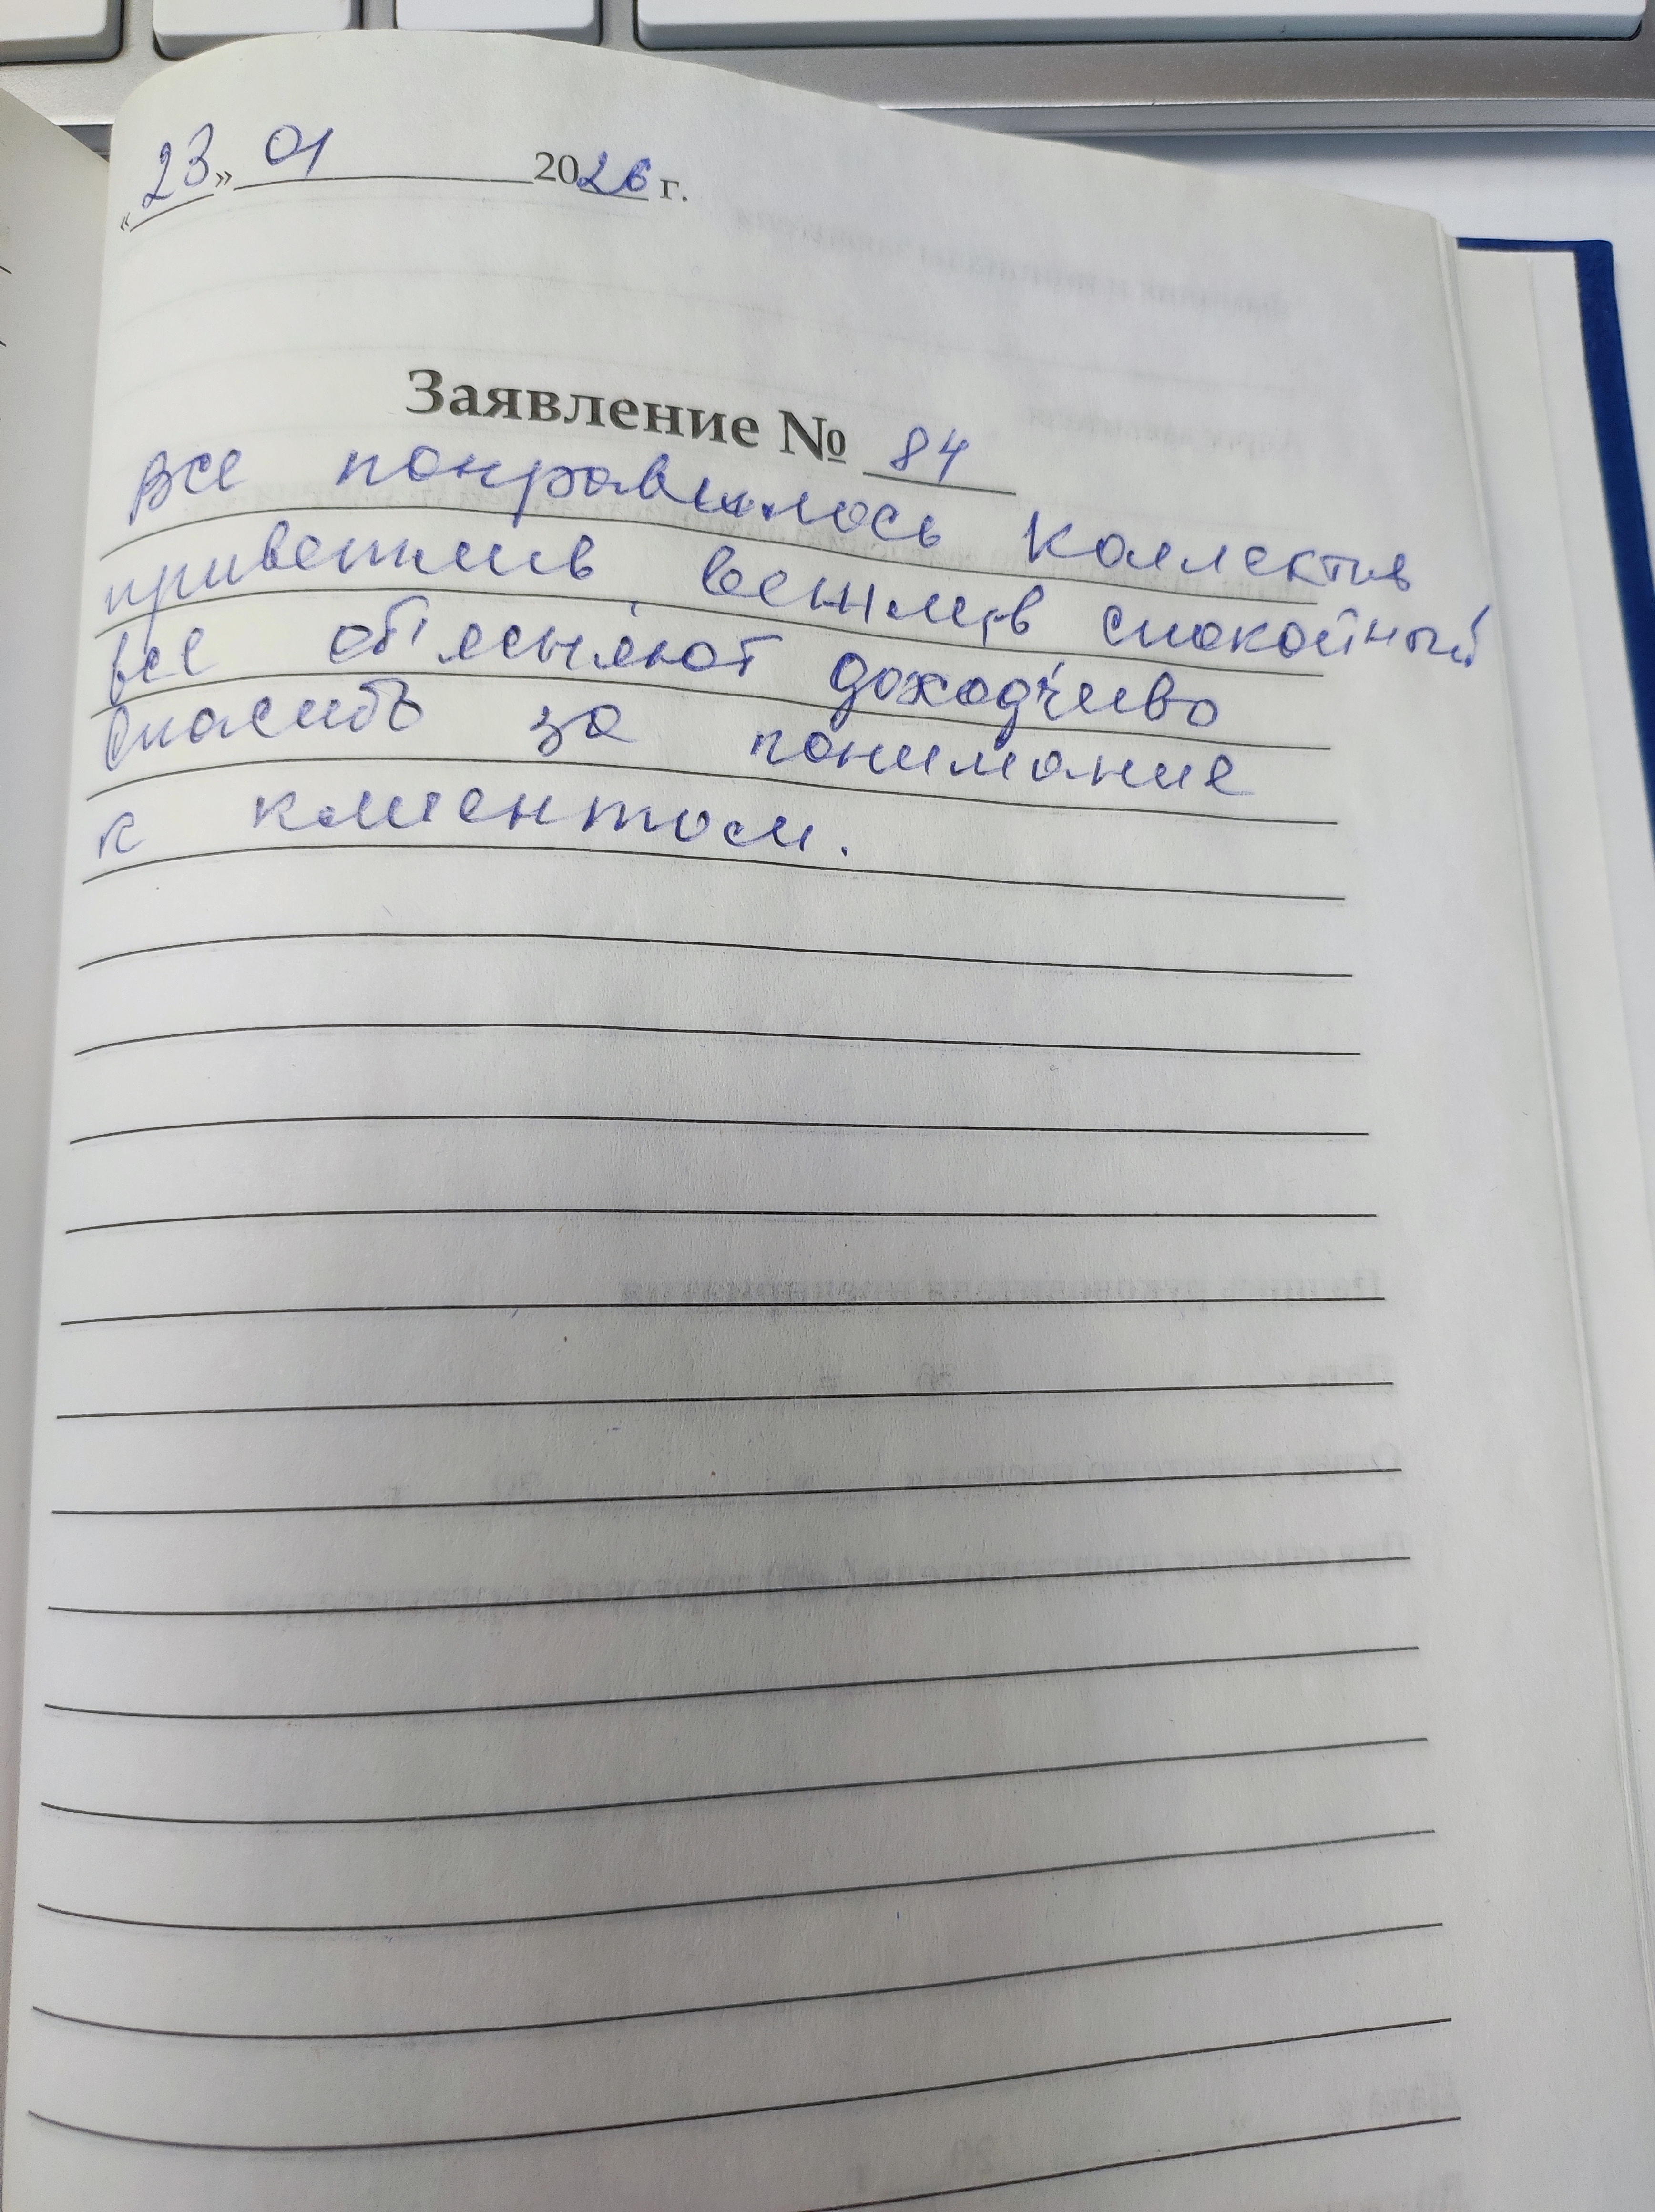 «23» 01 2026 г.
Заявление № 84
Все понравилось Коллектив
приветлив, вежлив спокойный
все объясняют доходчиво
Спасибо за понимание
к клиентам.